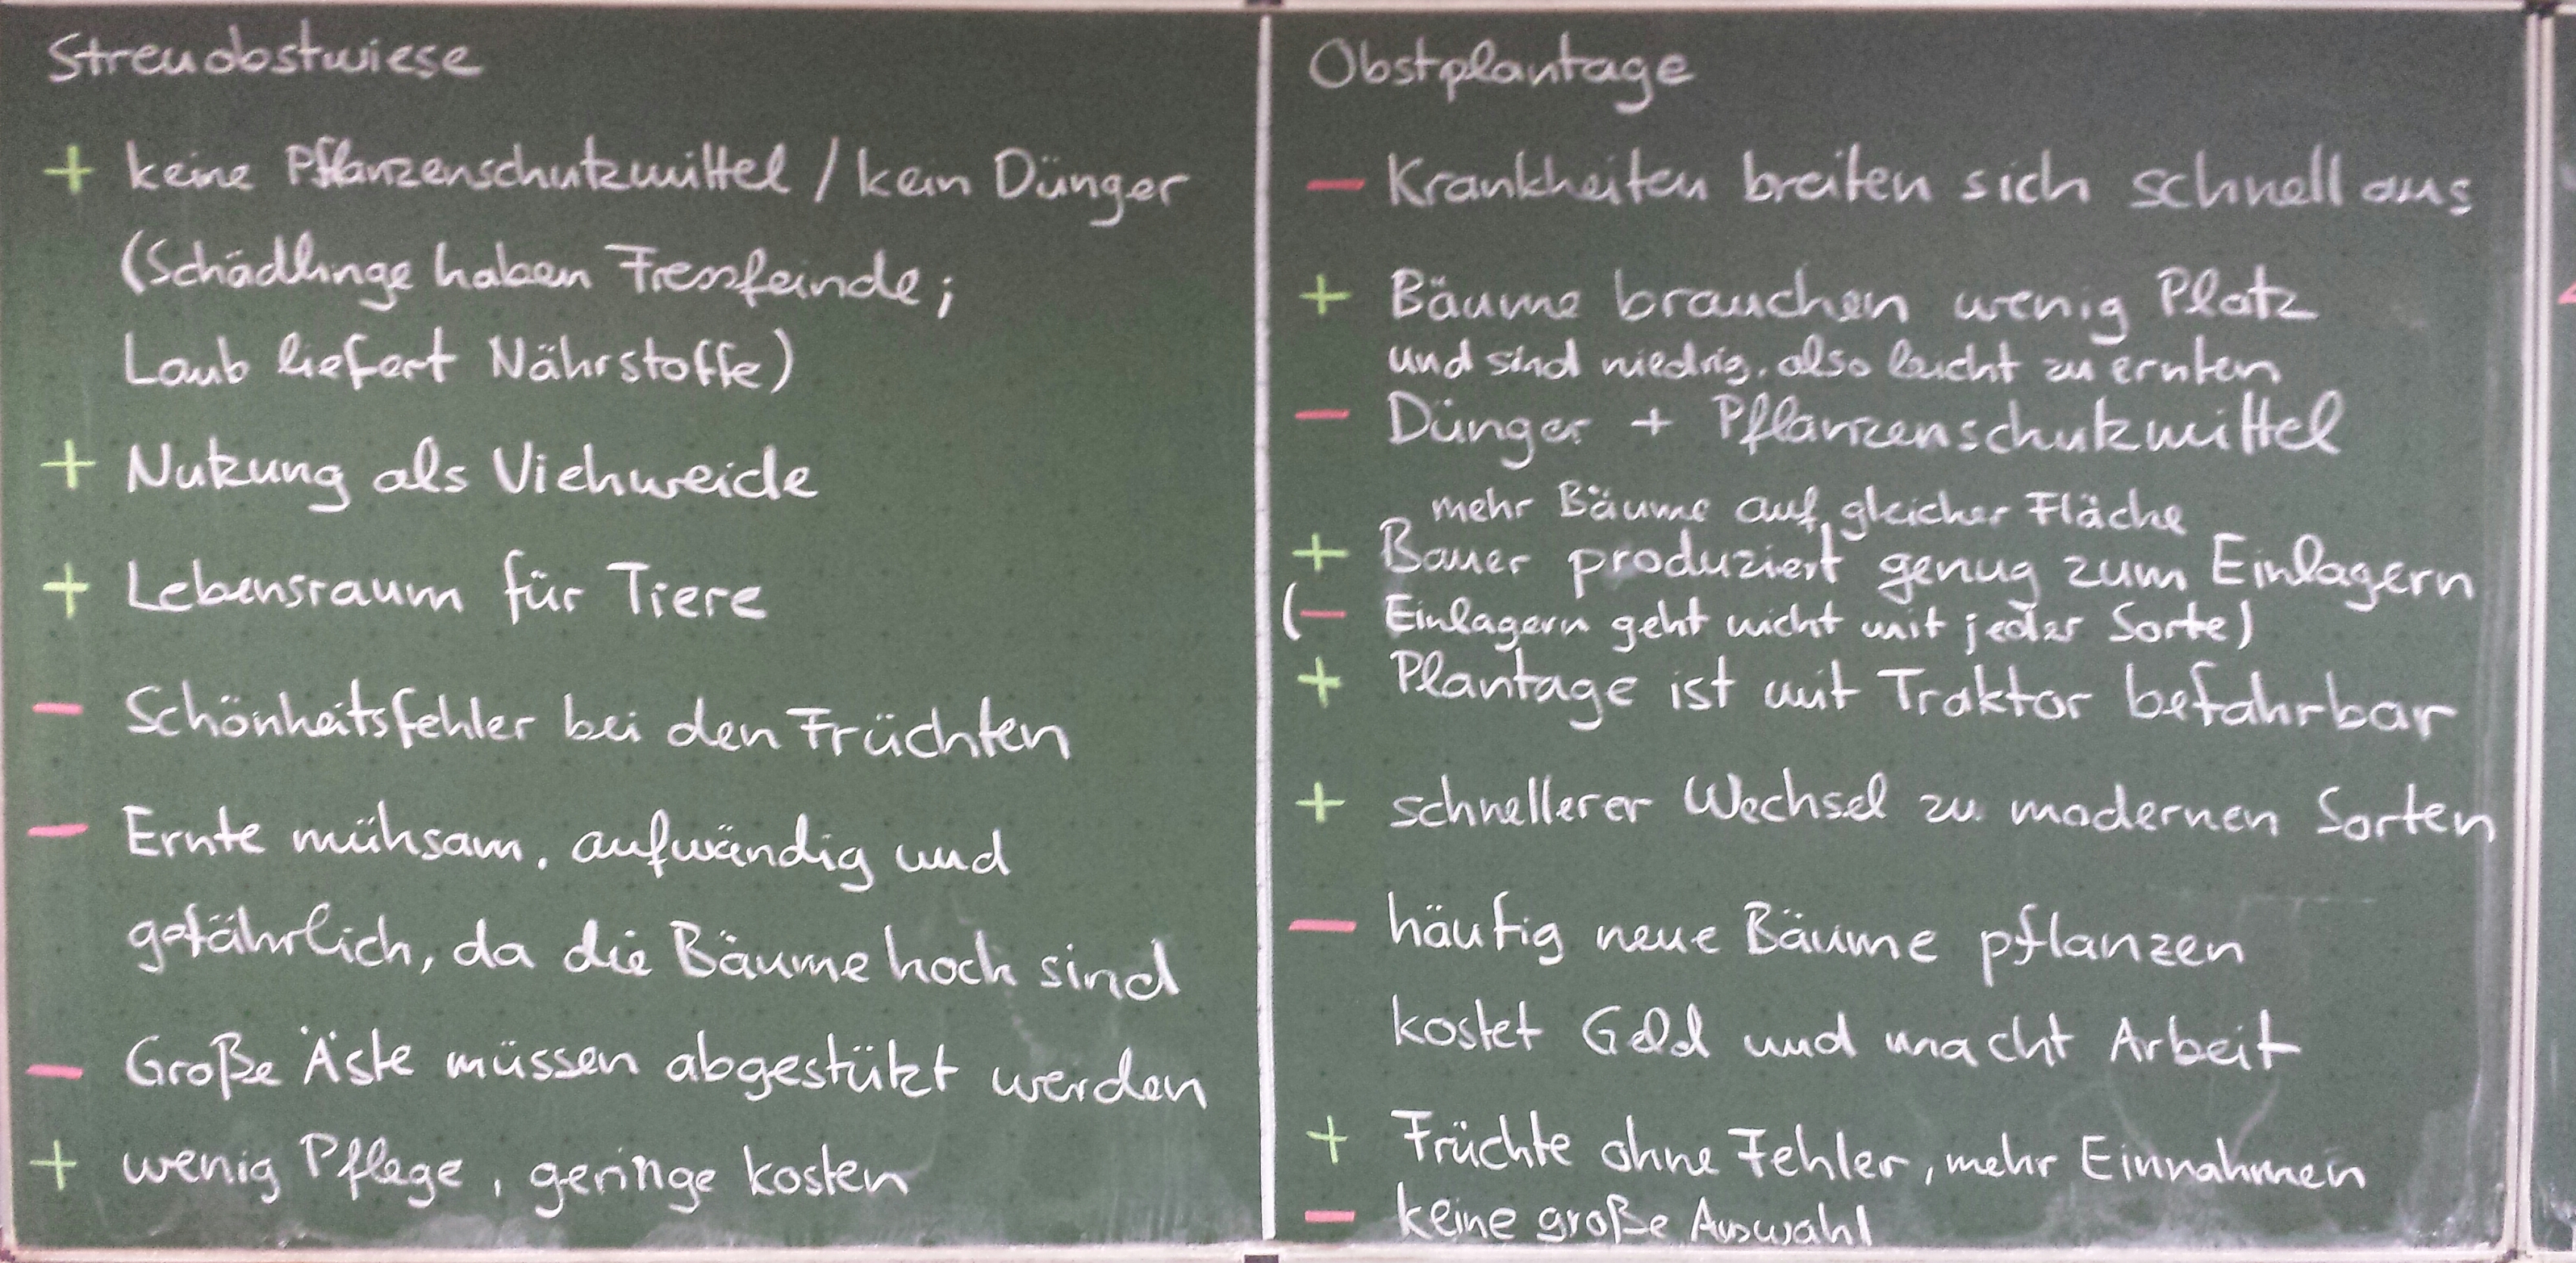 Streuobstwiese
+ keine Pflanzenschutzmittel / kein Dünger
(Schädlinge haben Fressfeinde;
Laub liefert Nährstoffe)
+ Nutzung als Viehweide
+ Lebensraum für Tiere
- Schönheitsfehler bei den Früchten
- Ernte mühsam, aufwändig und
gefährlich, da die Bäume hoch sind
- Große Äste müssen abgestützt werden
+ wenig Pflege, geringe Kosten
Obstplantage
- Krankheiten breiten sich schnell aus
+ Bäume brauchen wenig Platz
und sind niedrig, also leicht zu ernten
- Dünger + Pflanzenschutzmittel
mehr Bäume auf gleicher Fläche
+ Bauer produziert genug zum Einlagern
(- Einlagern geht nicht mit jeder Sorte)
+ Plantage ist mit Traktor befahrbar
+ schnellerer Wechsel zu modernen Sorten
- häufig neue Bäume pflanzen
kostet Geld und macht Arbeit
+ Früchte ohne Fehler, mehr Einnahmen
- keine große Auswahl